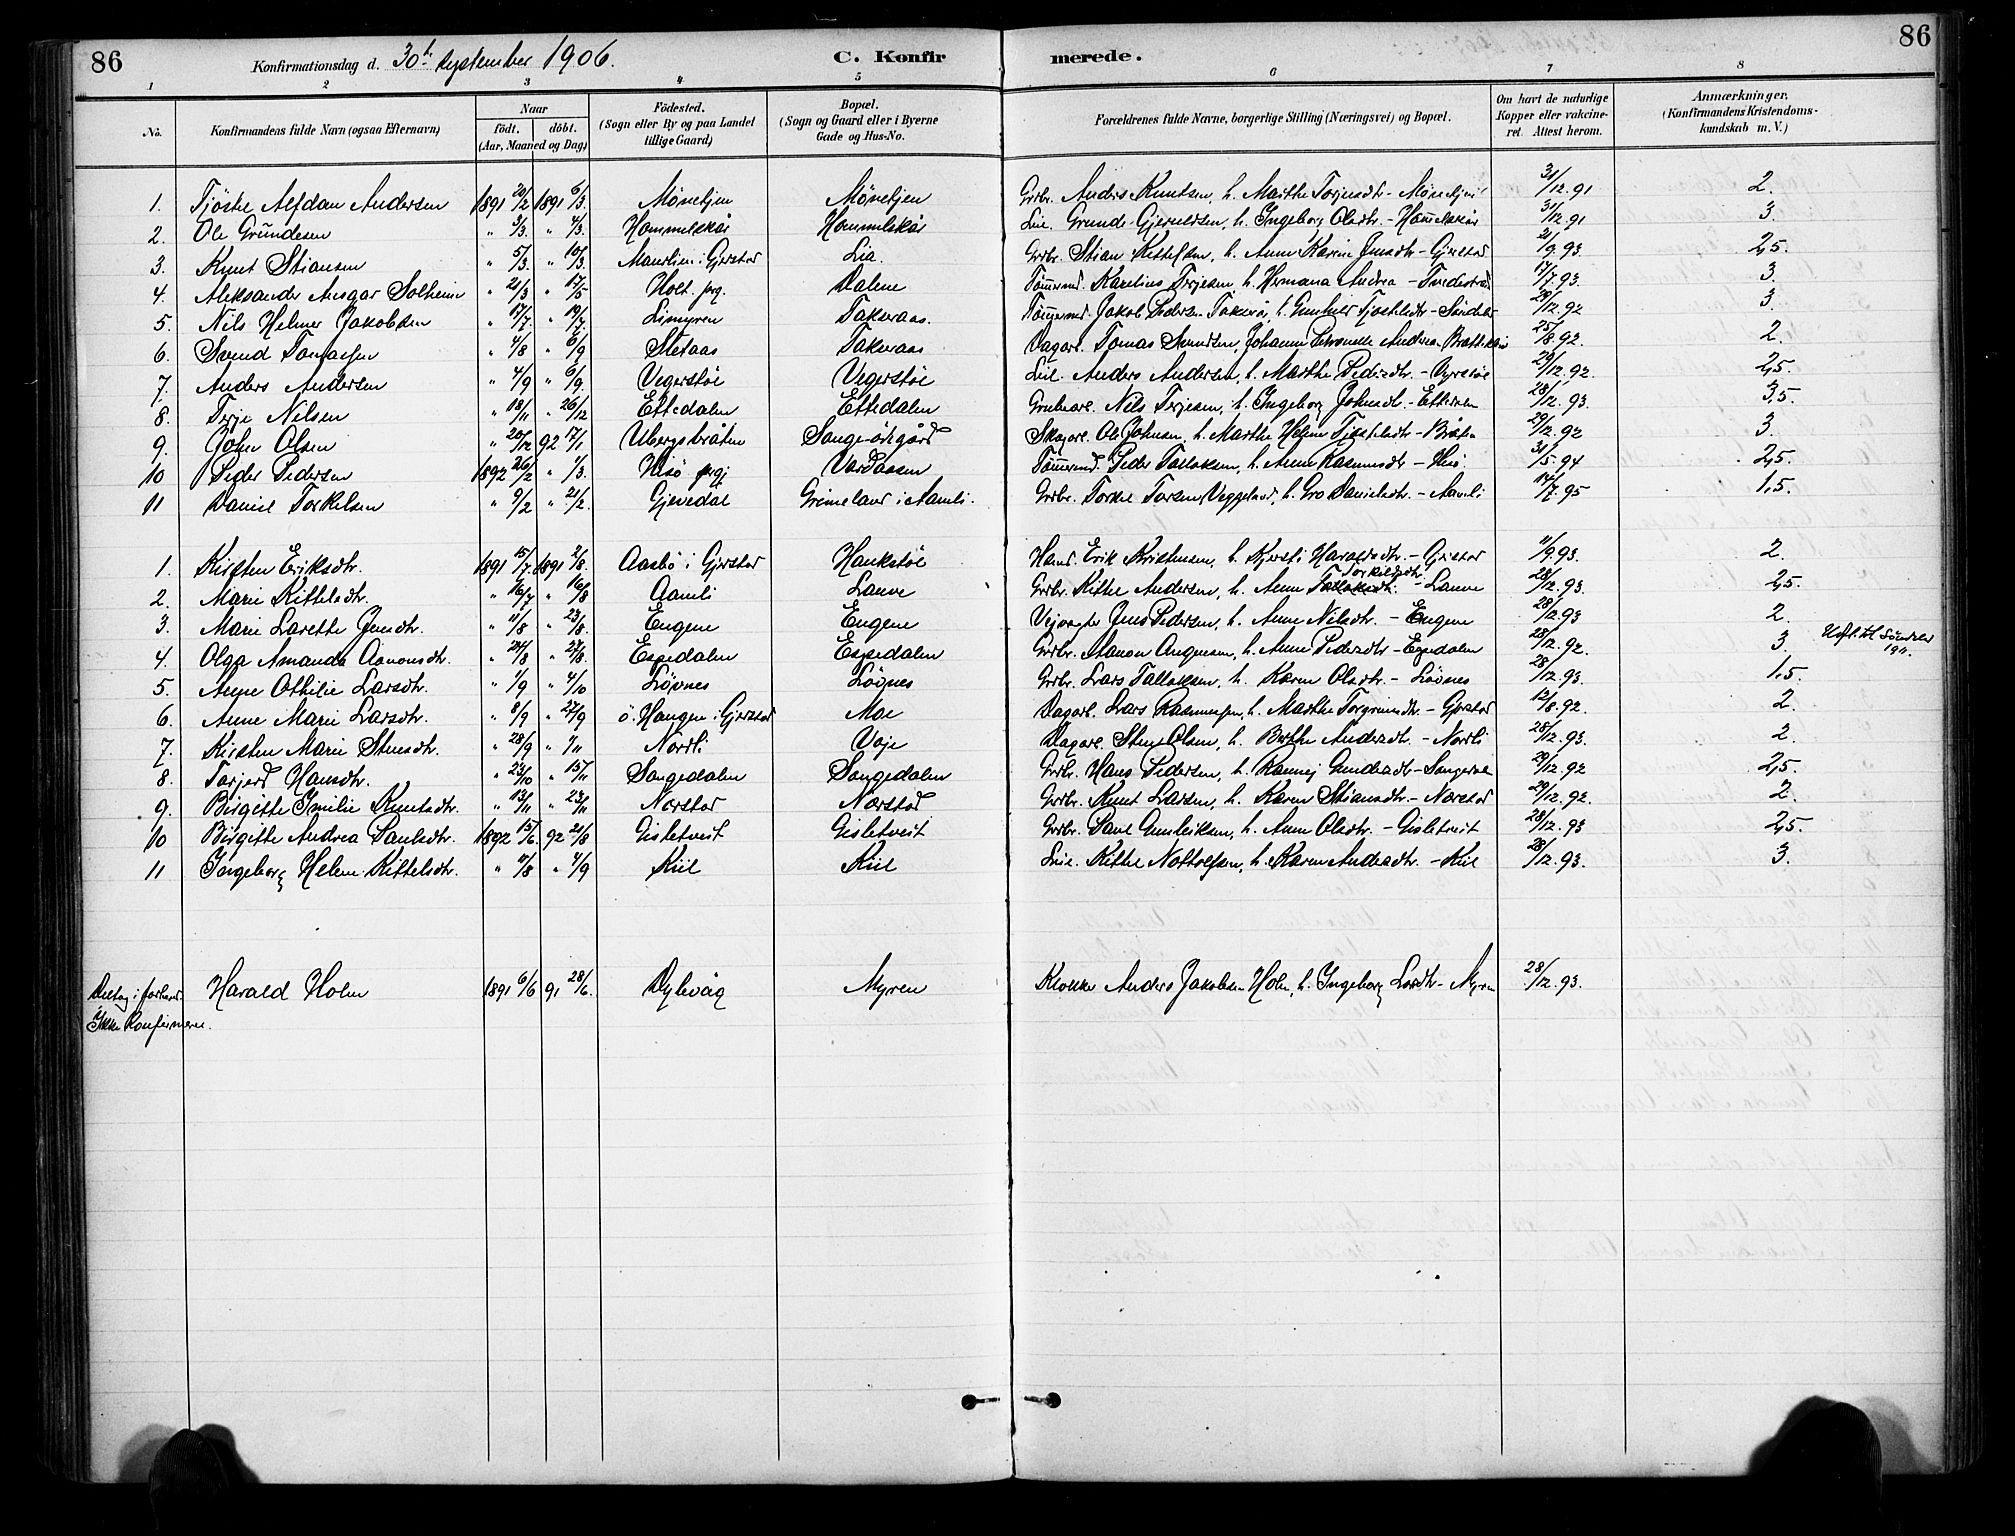 86
Konfirmationsdag d. 30te September 1906.
C. Konfirmerede.
86
1 2 3 4 5 6 7 8
No.
Konfirmandens fulde Navn (ogsaa Efternavn)
Naar
födt. döbt.
(Aar, Maaned og Dag)
Födested.
(Sogn eller By og paa Landet
tillige Gaard)
Bopæl.
(Sogn og Gaard eller i Byerne
Gade og Hus-No.
Forældrenes fulde Navne, borgerlige Stilling (Næringsvei) og Bopæl.
Om havt de naturlige
Kopper eller vakcine-
ret. Attest herom.
Anmærkninger,
(Konfirmandens Kristendoms-
kundskab m. V.)
1. Tjöstel Alfdan Andersen 1891 20/2 1891 6/3. Mönehjen Mönehjen Grbr. Anders Knutsen, h. Marthe Torjusdtr - Mönehjen 31/12.91 2.
2. Ole Grundesen " 3/3. " 4/3. Hommelskår Hommelskår Leil. Grunde Gjeruldsen, h. Ingeborg Olsdtr. - Hommelskår 31/12.91 3.
3. Knut Stiansen " 5/3. " 10/3. Maurlien i Gjerstad Lia. Grbr. Stian Kittelsen, h. Anne Karine Jensdtr - Gjerstad 21/9.93. 2,5.
4. Aleksander Ansgar Solheim " 21/3 " 17/5 Holt prg. Dalene Tömmermd. Karelius Terjesen, h. Hermana Andrea - Tvedestrand 17/7.93. 3.
5. Nils Helmer Jakobsen " 17/7. " 19/7. Limyren Takeraas. Tömmermd. Jakob Pedersen Takerås, h. Gunhild Tjöstelsdtr - Söndeled 29/12.92 3.
6. Svend Tomassen " 4/8 " 6/9 Sletaas Takeraas Dagarb. Tomas Svendsen, Johanne Petronelle Andrea - 25/8.92. 2.
7. Anders Andersen " 4/9 " 6/9. Vegerstöl Vegerstöl Leil. Anders Andersen, h. Marthe Pedersdtr. - 29/12.92. 2,5.
8. Terje Nilsen " 18/11 " 26/12 Ettedalen Ettedalen Grubearb. Nils Terjesen, h. Ingeborg Johnsdtr. - Ettedalen 28/12.93. 3,5.
9. John Olsen " 20/12 92 17/1 Ubergsbråten Songe-ödegård Skogarb. Ole Johnsen, h. Marthe Helene Tjöstelsdtr - Bråten 29/12.92 3.
10 Peder Pedersen 1892 26/2 " 1/3. Hisö prgj. Vardaasen Tömmermd. Peder Tallaksen, h. Anne Rasmusdtr - Hisö. 31/5.94 2,5.
11 Daniel Torkelsen " 9/2 " 21/2. Gjevedal Grimeland i Aamli. Grbr. Torkel Torsen Veggeland, h. Gro Danielsdtr. - Aamli 14/7.95 1,5.
1. Kirsten Eriksdtr. 1891 15/7. 1891 2/8. Aasbö i Gjerstad Haukstöl Hand. Erik Kristensen, h. Kjersti Haraldsdtr. - Gjerstad 11/9.93. 2.
2. Marie Kittelsdtr. " 16/7 " 16/8 Aamli Lauve Grbr. Kittel Andersen, h. Anne Torkildsdtr. - Lauve 28/12.93. 2,5.
3. Marie Lorette Jensdtr. " 11/8 " 23/8. Engene Engene Vejvogter Jens Pedersen, h. Anne Nilsdtr. - Engene 28/12.93 2.
4. Olga Amanda Aanonsdtr. " 24/8 " 27/8. Espedalen Espedalen Grbr. Aanon Angnesen, h. Anne Pedersdtr - Espedalen 28/12.92. 3 Utfl. til Söndeled
1911.
5. Anne Othilie Larsdtr. " 1/9 " 4/10 Lövnes Lövnes Grbr. Lars Tallaksen, h. Karen Olsdtr. - Lövnes 28/12.93. 1,5.
6. Anne Marie Larsdtr. " 8/9 " 27/9 ö. Haugen i Gjerstad Moe Dagarb. Lars Rasmussen, h. Marthe Torgrimsdtr. - Gjerstad 12/8.92. 2.
7. Kirsten Marie Stensdtr. " 28/9 " 1/11 Nordli Voje Dagarb. Sten Olsen, h. Berthe Andersdtr. - Nordli 28/12.93. 2.
8. Torjerd Hansdtr. " 23/10 " 15/11 Songedalen Songedalen Grbr. Hans Pedersen, h. Rannej Gundersdtr - Songedalen 29/12.92 2,5.
9. Birgitte Emilie Knutsdtr. " 13/11 " 23/11 Norstad Norstad Grbr. Knut Larsen, h. Karen Stiansdtr. - Norstad 29/12.92. 2.
10 Birgitte Andrea Paulsdtr. 1892 15/6. 92 21/8 Gisletveit Gisletveit Grbr. Paul Gunleiksen, h. Anne Olsdtr. - Gisletveit 28/12.93 2,5.
11 Ingeborg Helene Kittelsdtr. " 11/8 " 4/9 Kiil Kiil Leil. Kittel Notholfsen, h. Karen Andersdtr. - Kiil 28/12.93. 3.
Deltog i forbered.
Ikke Konfirmeret.
Harald Holm 1891 6/6 91 28/6. Dybvåg Myren Klokker Anders Jakobsen Holm, h. Ingeborg Larsdtr - Myren 28/12.93.